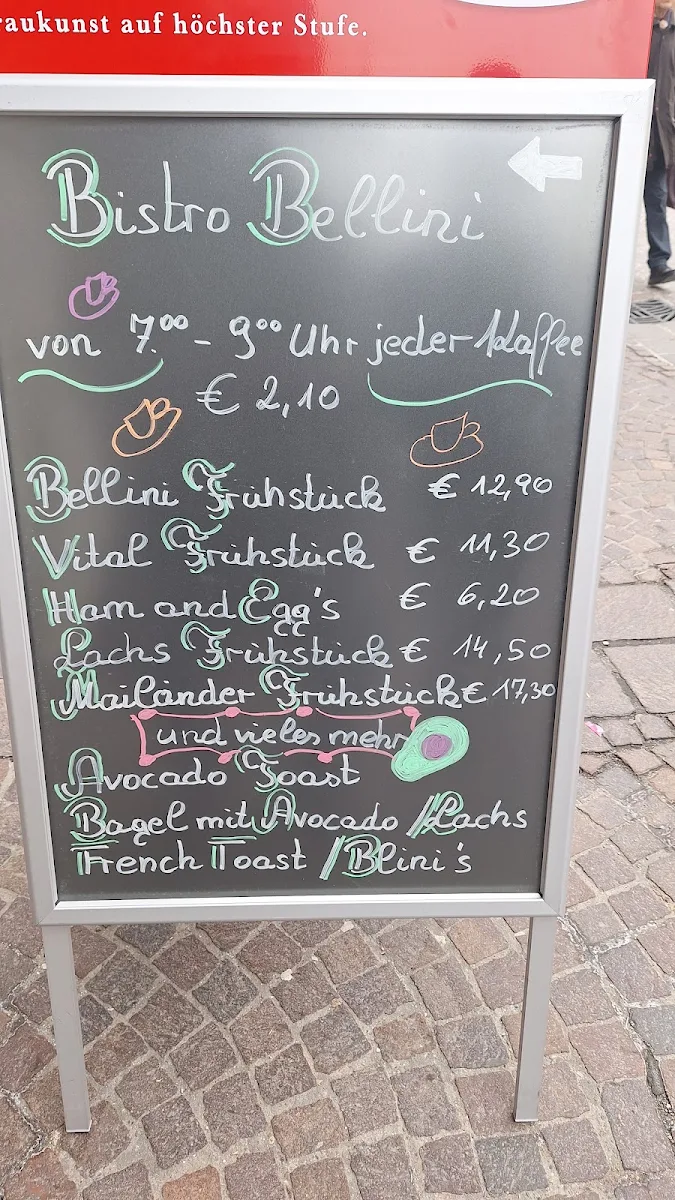 raukunst auf höchster Stufe.
Bistro Bellini
von 7.00 - 9.00 Uhr jeder Kaffee
€ 2,10
Bellini Frühstück € 12,90
Vital Frühstück € 11,30
Ham and Egg's € 6,20
Lachs Frühstück € 14,50
Mailänder Frühstück € 17,30
und vieles mehr
Avocado Toast
Bagel mit Avocado / Lachs
French Toast / Blini's